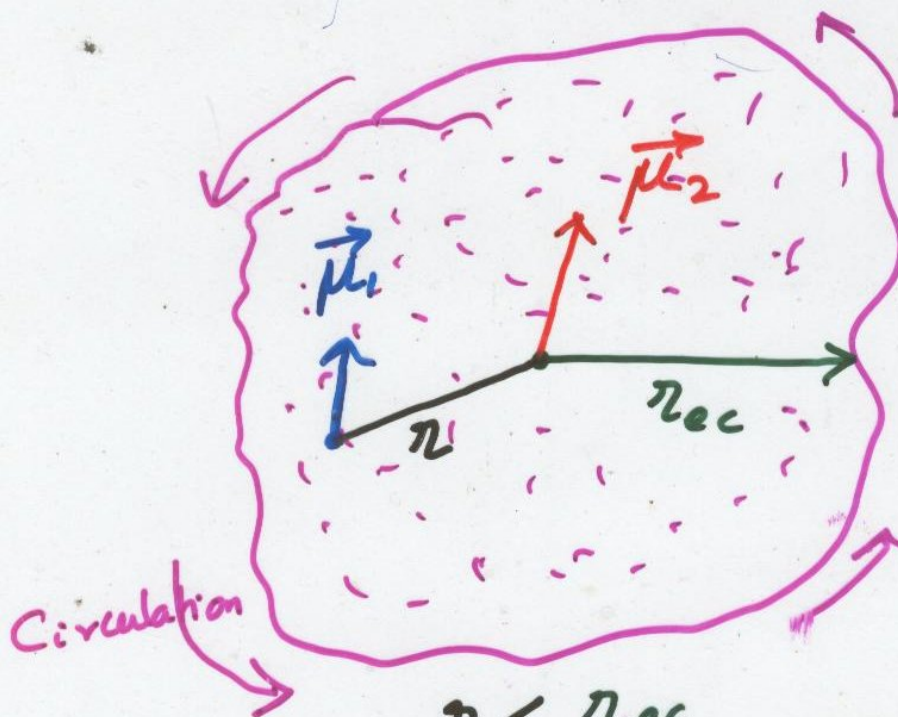 μ⃗₂
μ⃗₁
r_ec
r
Circulation
r < r_ec